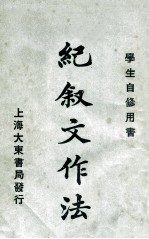 學生自修用書
紀敘文作法
上海大東書局發行